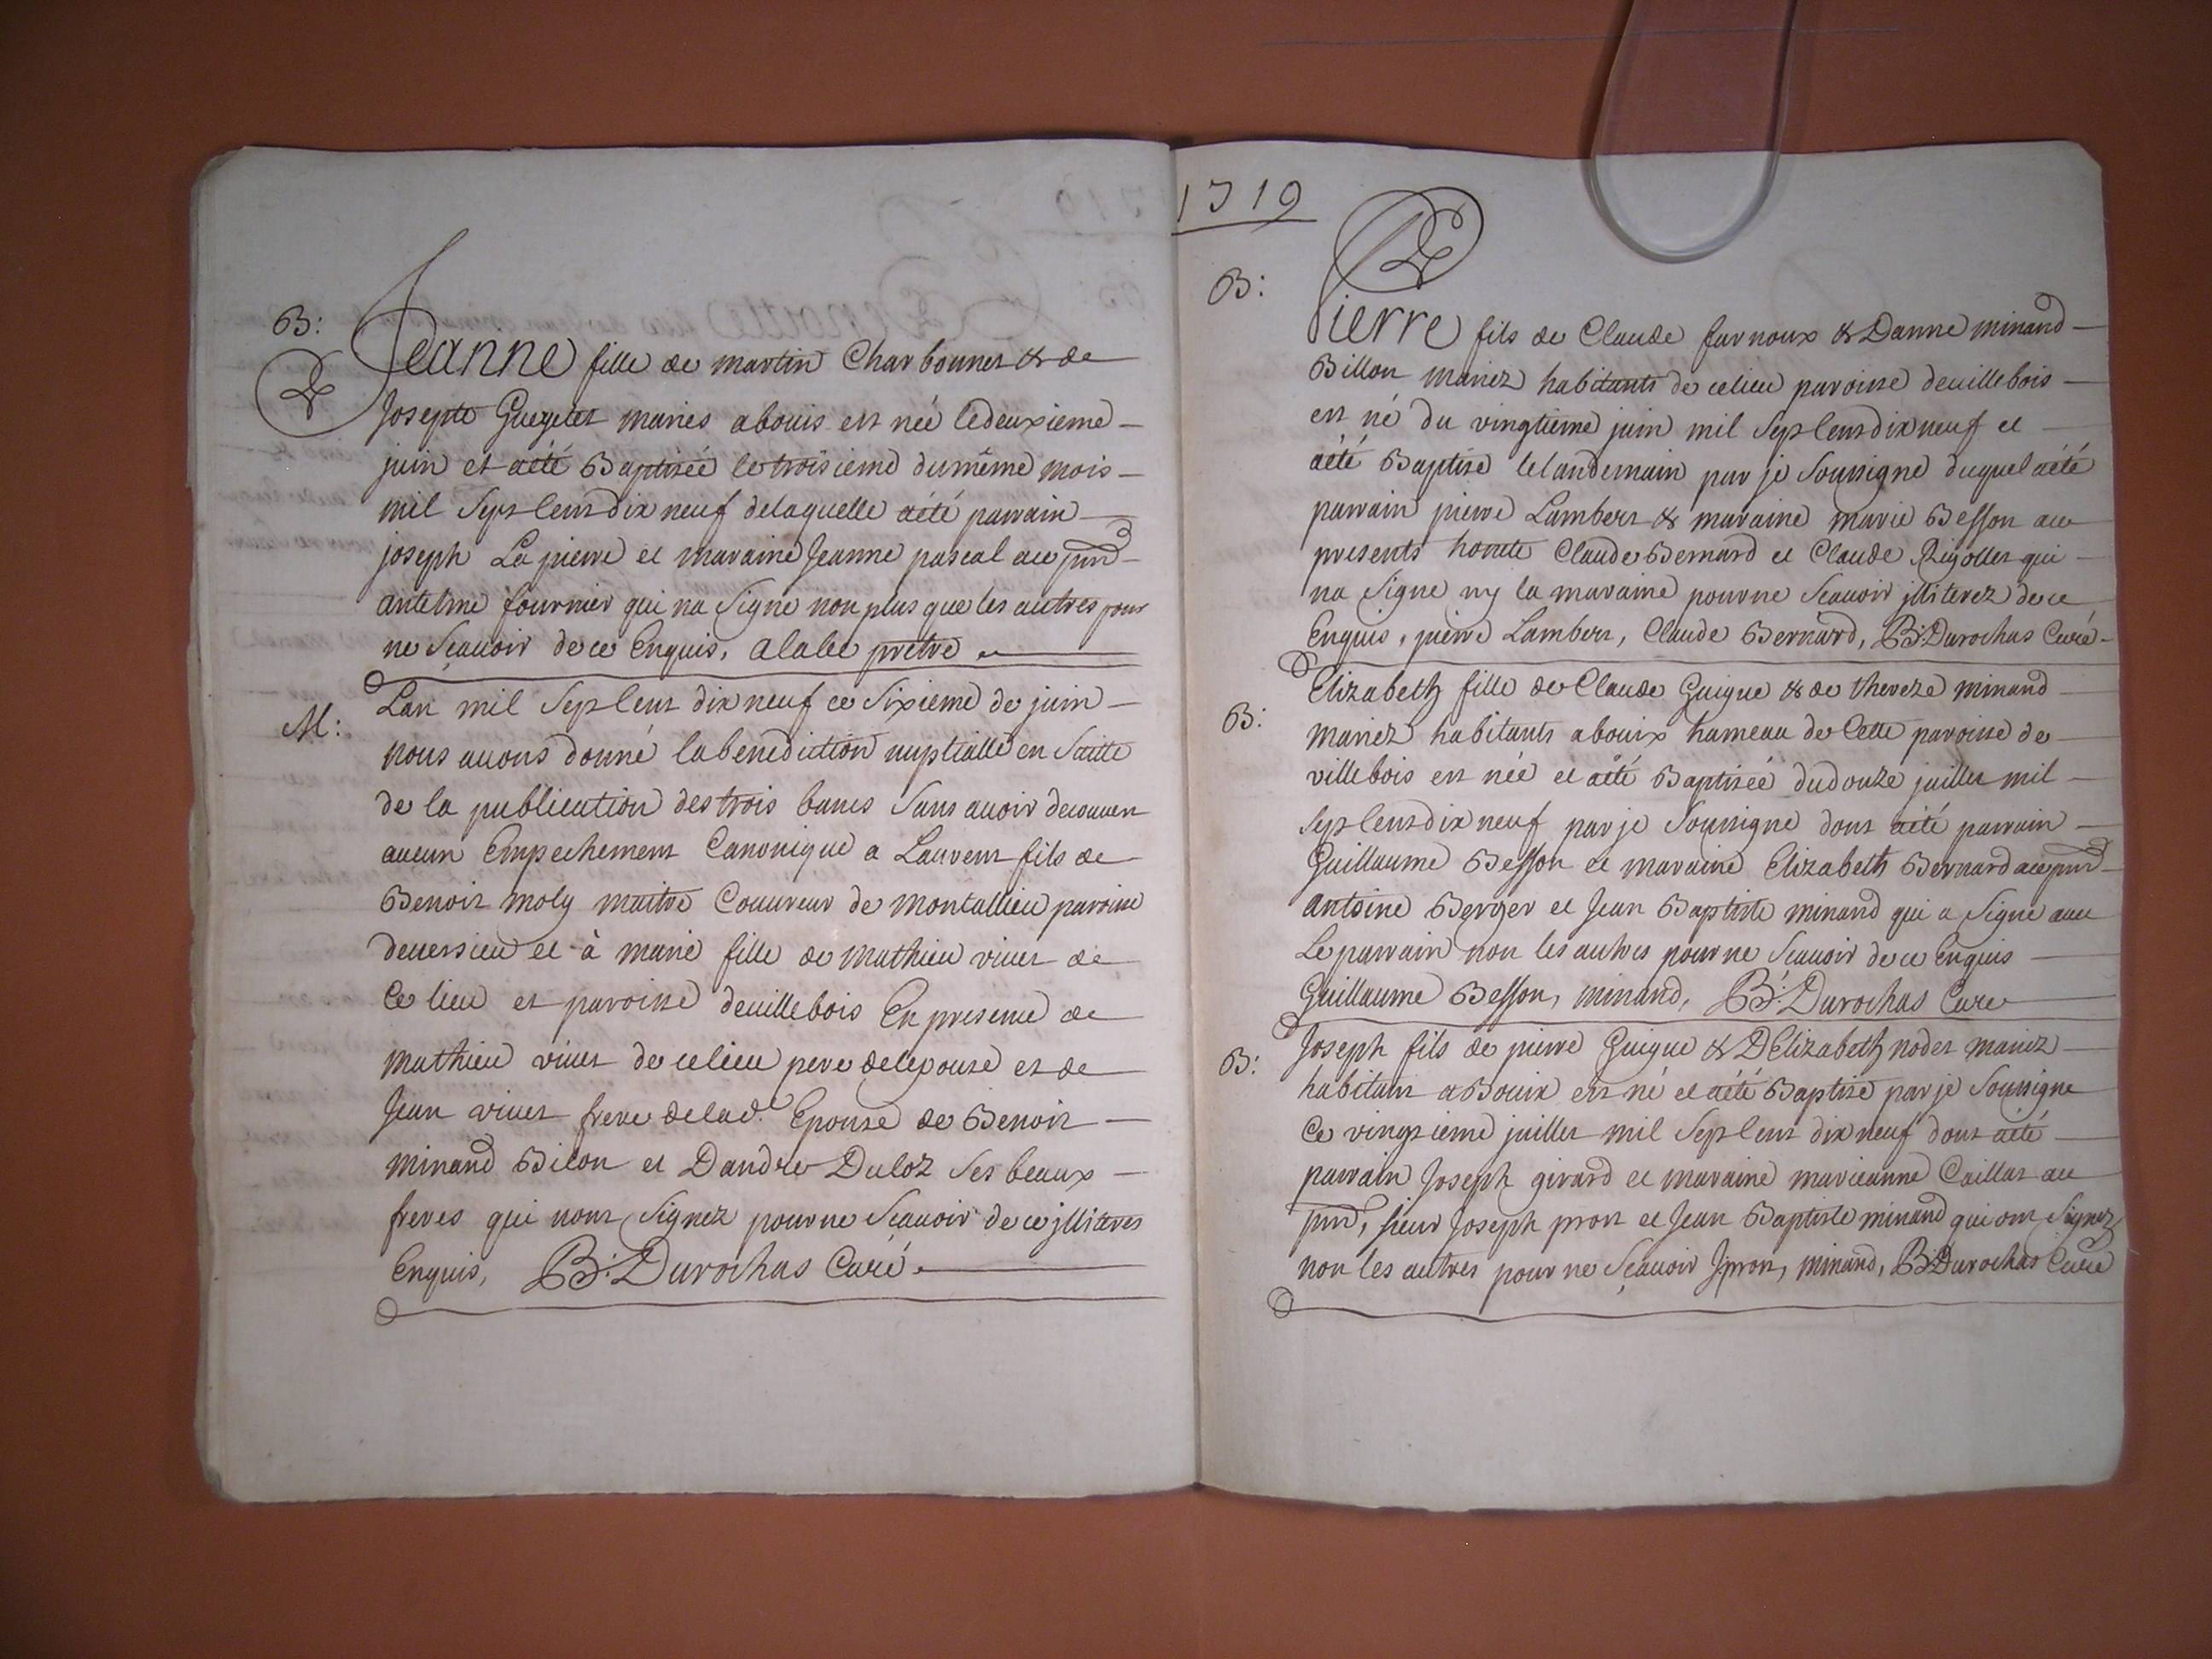 B:
Jeanne fille de martin Charbonnet & de
Josepte Guegelet mariés abouis est née ledeuxieme
juin et aété Baptisée letroisieme dumême mois
mil Sept Cens dix neuf delaquelle aété parrain
joseph La pierre et maraine Jeanne pascal aue pnd
antelme fournier qui na Signe non plus que les autres pour
ne Sçauoir dece Enquis, alabe prêtre
M:
Lan mil Sept Cens dix neuf ce Sixieme de juin
nous auons donné labenediction nuptialle en Suitte
de la publication destrois bancs Sans auoir decouuert
aucun Empechement Canonique a Laurent fils de
Benoit moly maitre Couureur de montallieu paroisse
deuersieu et à marie fille de mathieu viuet de
Ce lieu et paroisse deuillebois En presence de
mathieu viuet de celieu pere delepouse et de
Jean viuet frere delad.e Epouse de Benoit
minand Bilon et Dandre Duloz Ses beaux
freres qui nont Signez pourne Scauoir de ce jlliteres
Enquis, B: Durochas Curé.
1719
B:
Pierre fils de Claude farnoux & Danne minand
Billon mariez habitants de celieu paroisse deuillebois
est né du vingtieme juin mil Sept Cens dix neuf et
aété Baptise lelandemain par je Soussigne duquel aété
parrain pierre Lambert & maraine marie Besson aue
presents honete Claude Bernard et Claude Rigollet qui
na Signe ny la maraine pourne Scauoir jlliterez dece
Enquis, pierre Lambert, Claude Bernard, B: Durochas Curé
B:
Elizabeth fille de Claude Guigue & de thereze minand
mariez habitants abouix hameau de Cette paroisse de
villebois est née et aété Baptisée dudouze juillet mil
Sept Cens dix neuf par je Soussigne dont aété parrain
Guillaume Besson et maraine Elizabeth Bernard aue pnd
antoine Berger et Jean Baptiste minand qui a Signe auec
Le parrain non les autres pour ne Scauoir dece Enquis
Guillaume Besson, minand, B: Durochas Cure
B:
Joseph fils de pierre Guigue & DElizabeth nodet mariez
habitans a Bouix est né et aété Baptise par je Soussigne
Ce vingt ieme juillet mil Sept Cens dix neuf dont aété
parrain Joseph girard et maraine marieanne Caillat aue
pnd, sieur Joseph pront et Jean Baptiste minand qui ont Signez
non les autres pour ne Sçauoir Jpront, minand, B: Durochas Curé